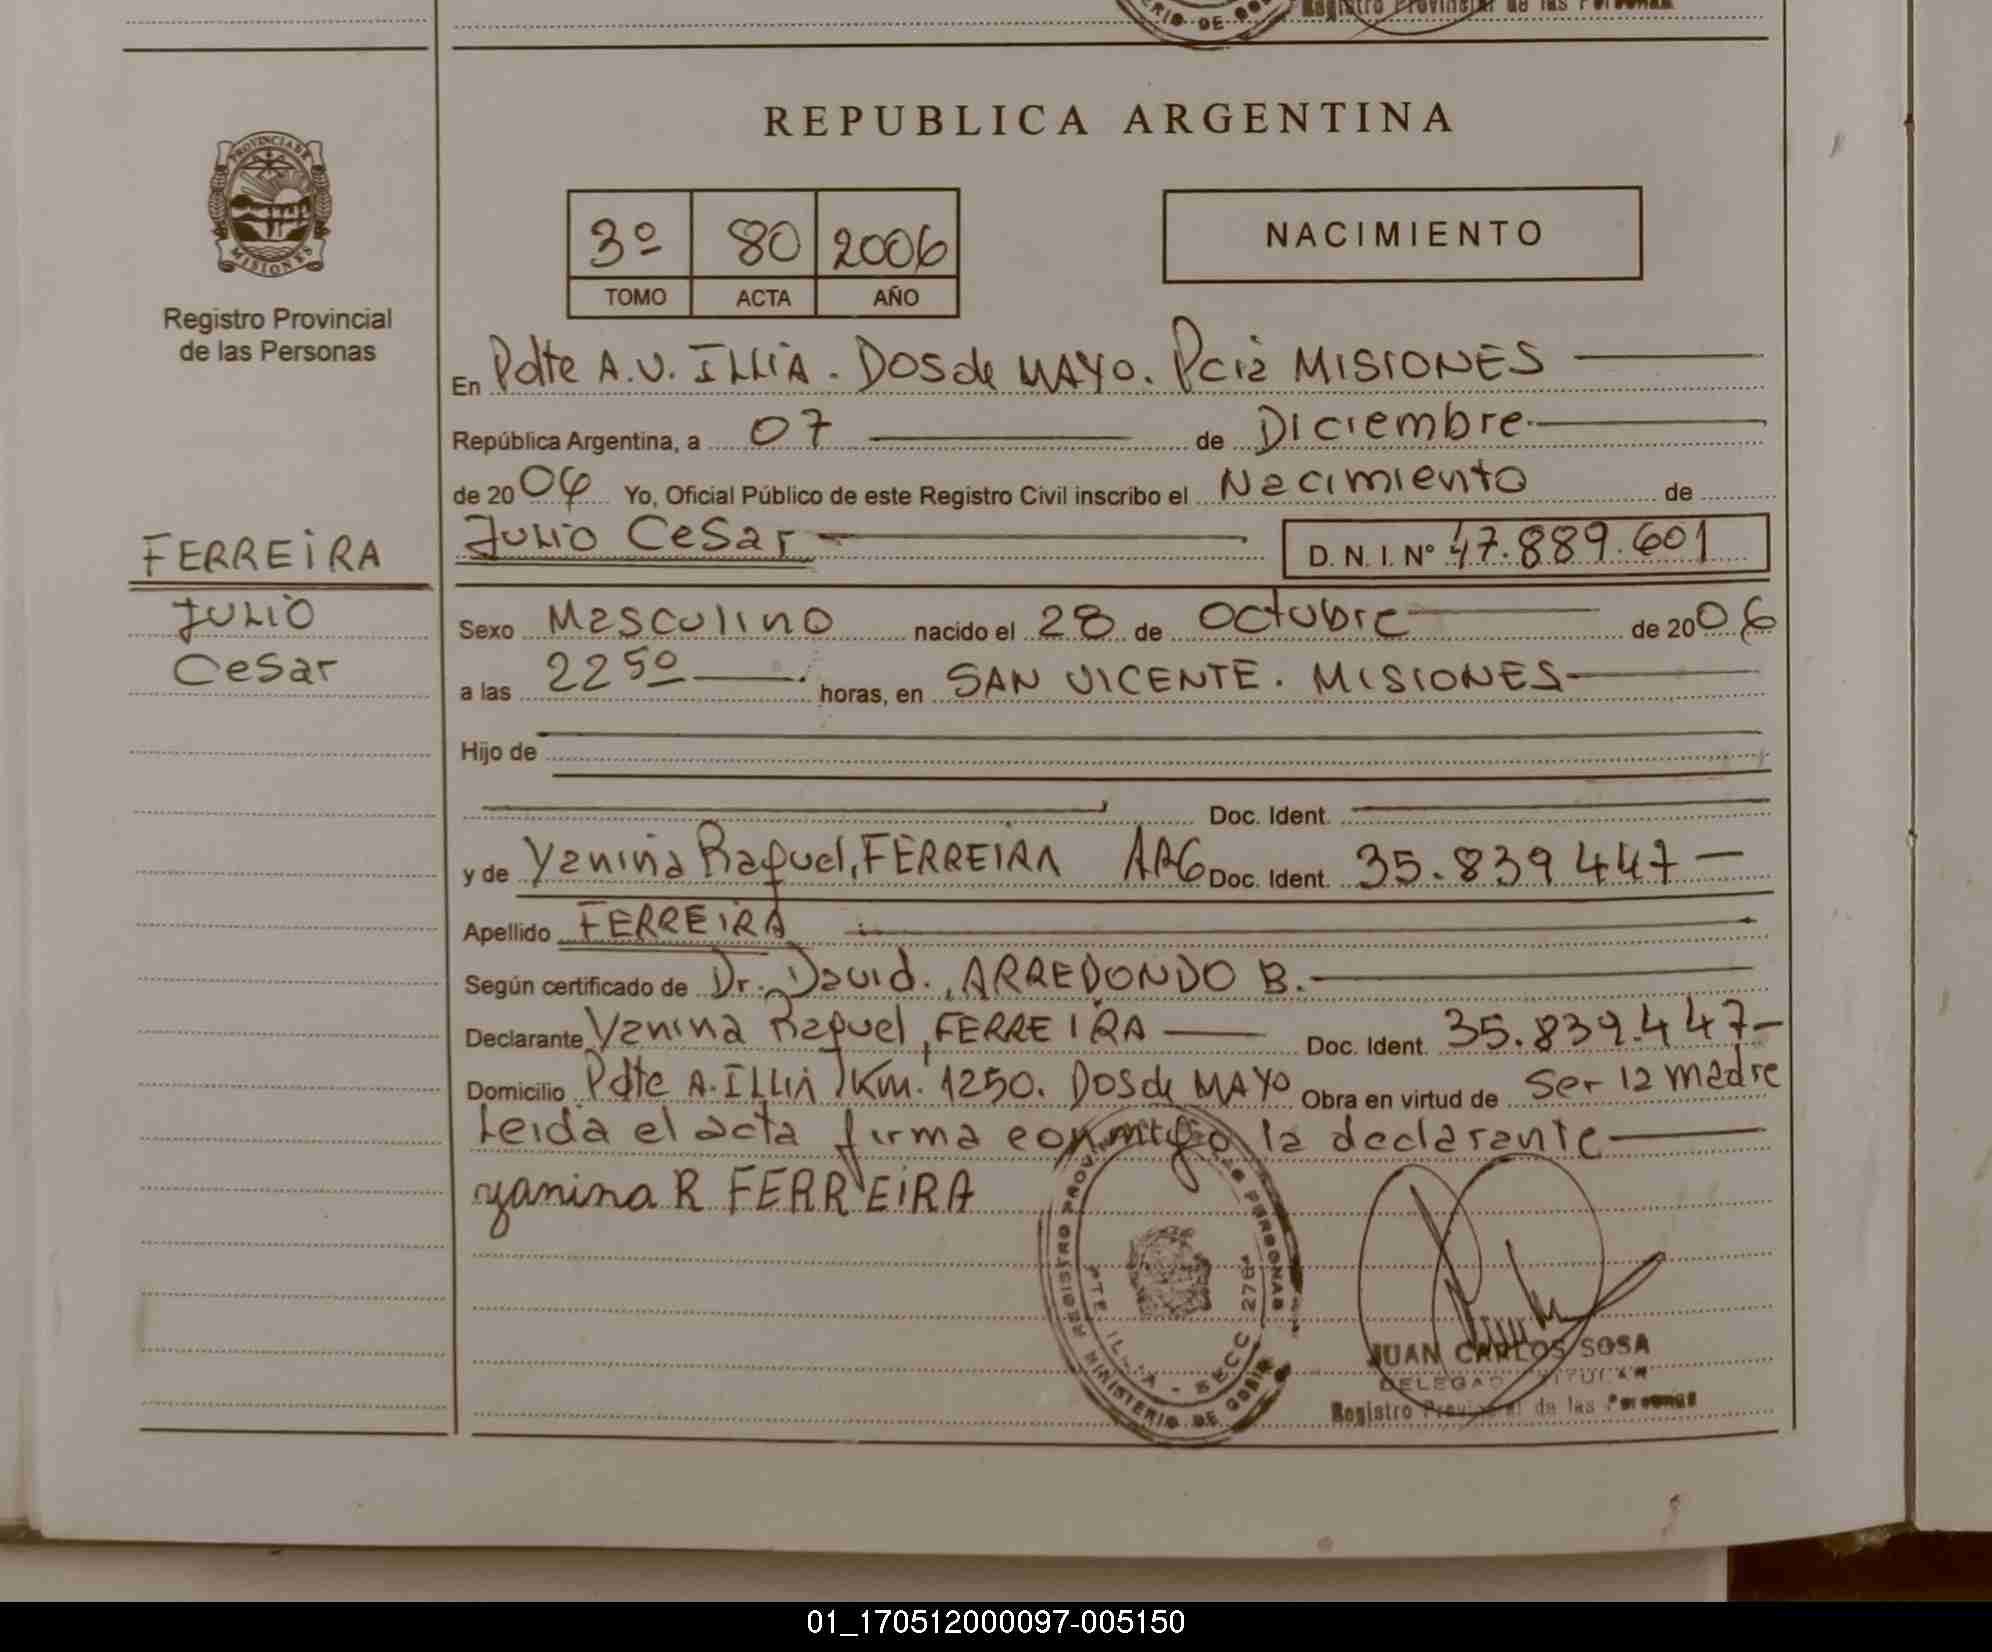 Registro Provincial de las Personas
REPUBLICA ARGENTINA
PROVINCIA DE
MISIONES
Registro Provincial
de las Personas
3º 80 2006
TOMO ACTA AÑO
NACIMIENTO
En Pdte A.U. ILLIA. DOS de MAYO. Pcia MISIONES
República Argentina, a 07 de Diciembre
de 2006 Yo, Oficial Público de este Registro Civil inscribo el Nacimiento de
FERREIRA
Julio Cesar D. N. I. Nº 47.889.601
JULIO
Cesar
Sexo Masculino nacido el 28 de Octubre de 2006
a las 22 50 horas, en SAN VICENTE. MISIONES
Hijo de
Doc. Ident.
y de Yanina Raquel, FERREIRA ARG Doc. Ident. 35.839 447
Apellido FERREIRA
Según certificado de Dr. David. ARREDONDO B.
Declarante Yanina Raquel, FERREIRA Doc. Ident. 35.839.447
Domicilio Pdte A. ILLIA Km. 1250. Dos de MAYO Obra en virtud de Ser la madre
Leida el acta firma conmigo la declarante
yanina R FERREIRA
REGISTRO PROVINCIAL DE LAS PERSONAS
PTE ILLIA - SECC 276
MINISTERIO DE GOBIERNO
JUAN CARLOS SOSA
DELEGADO TITULAR
Registro Provincial de las Personas
01_170512000097-005150